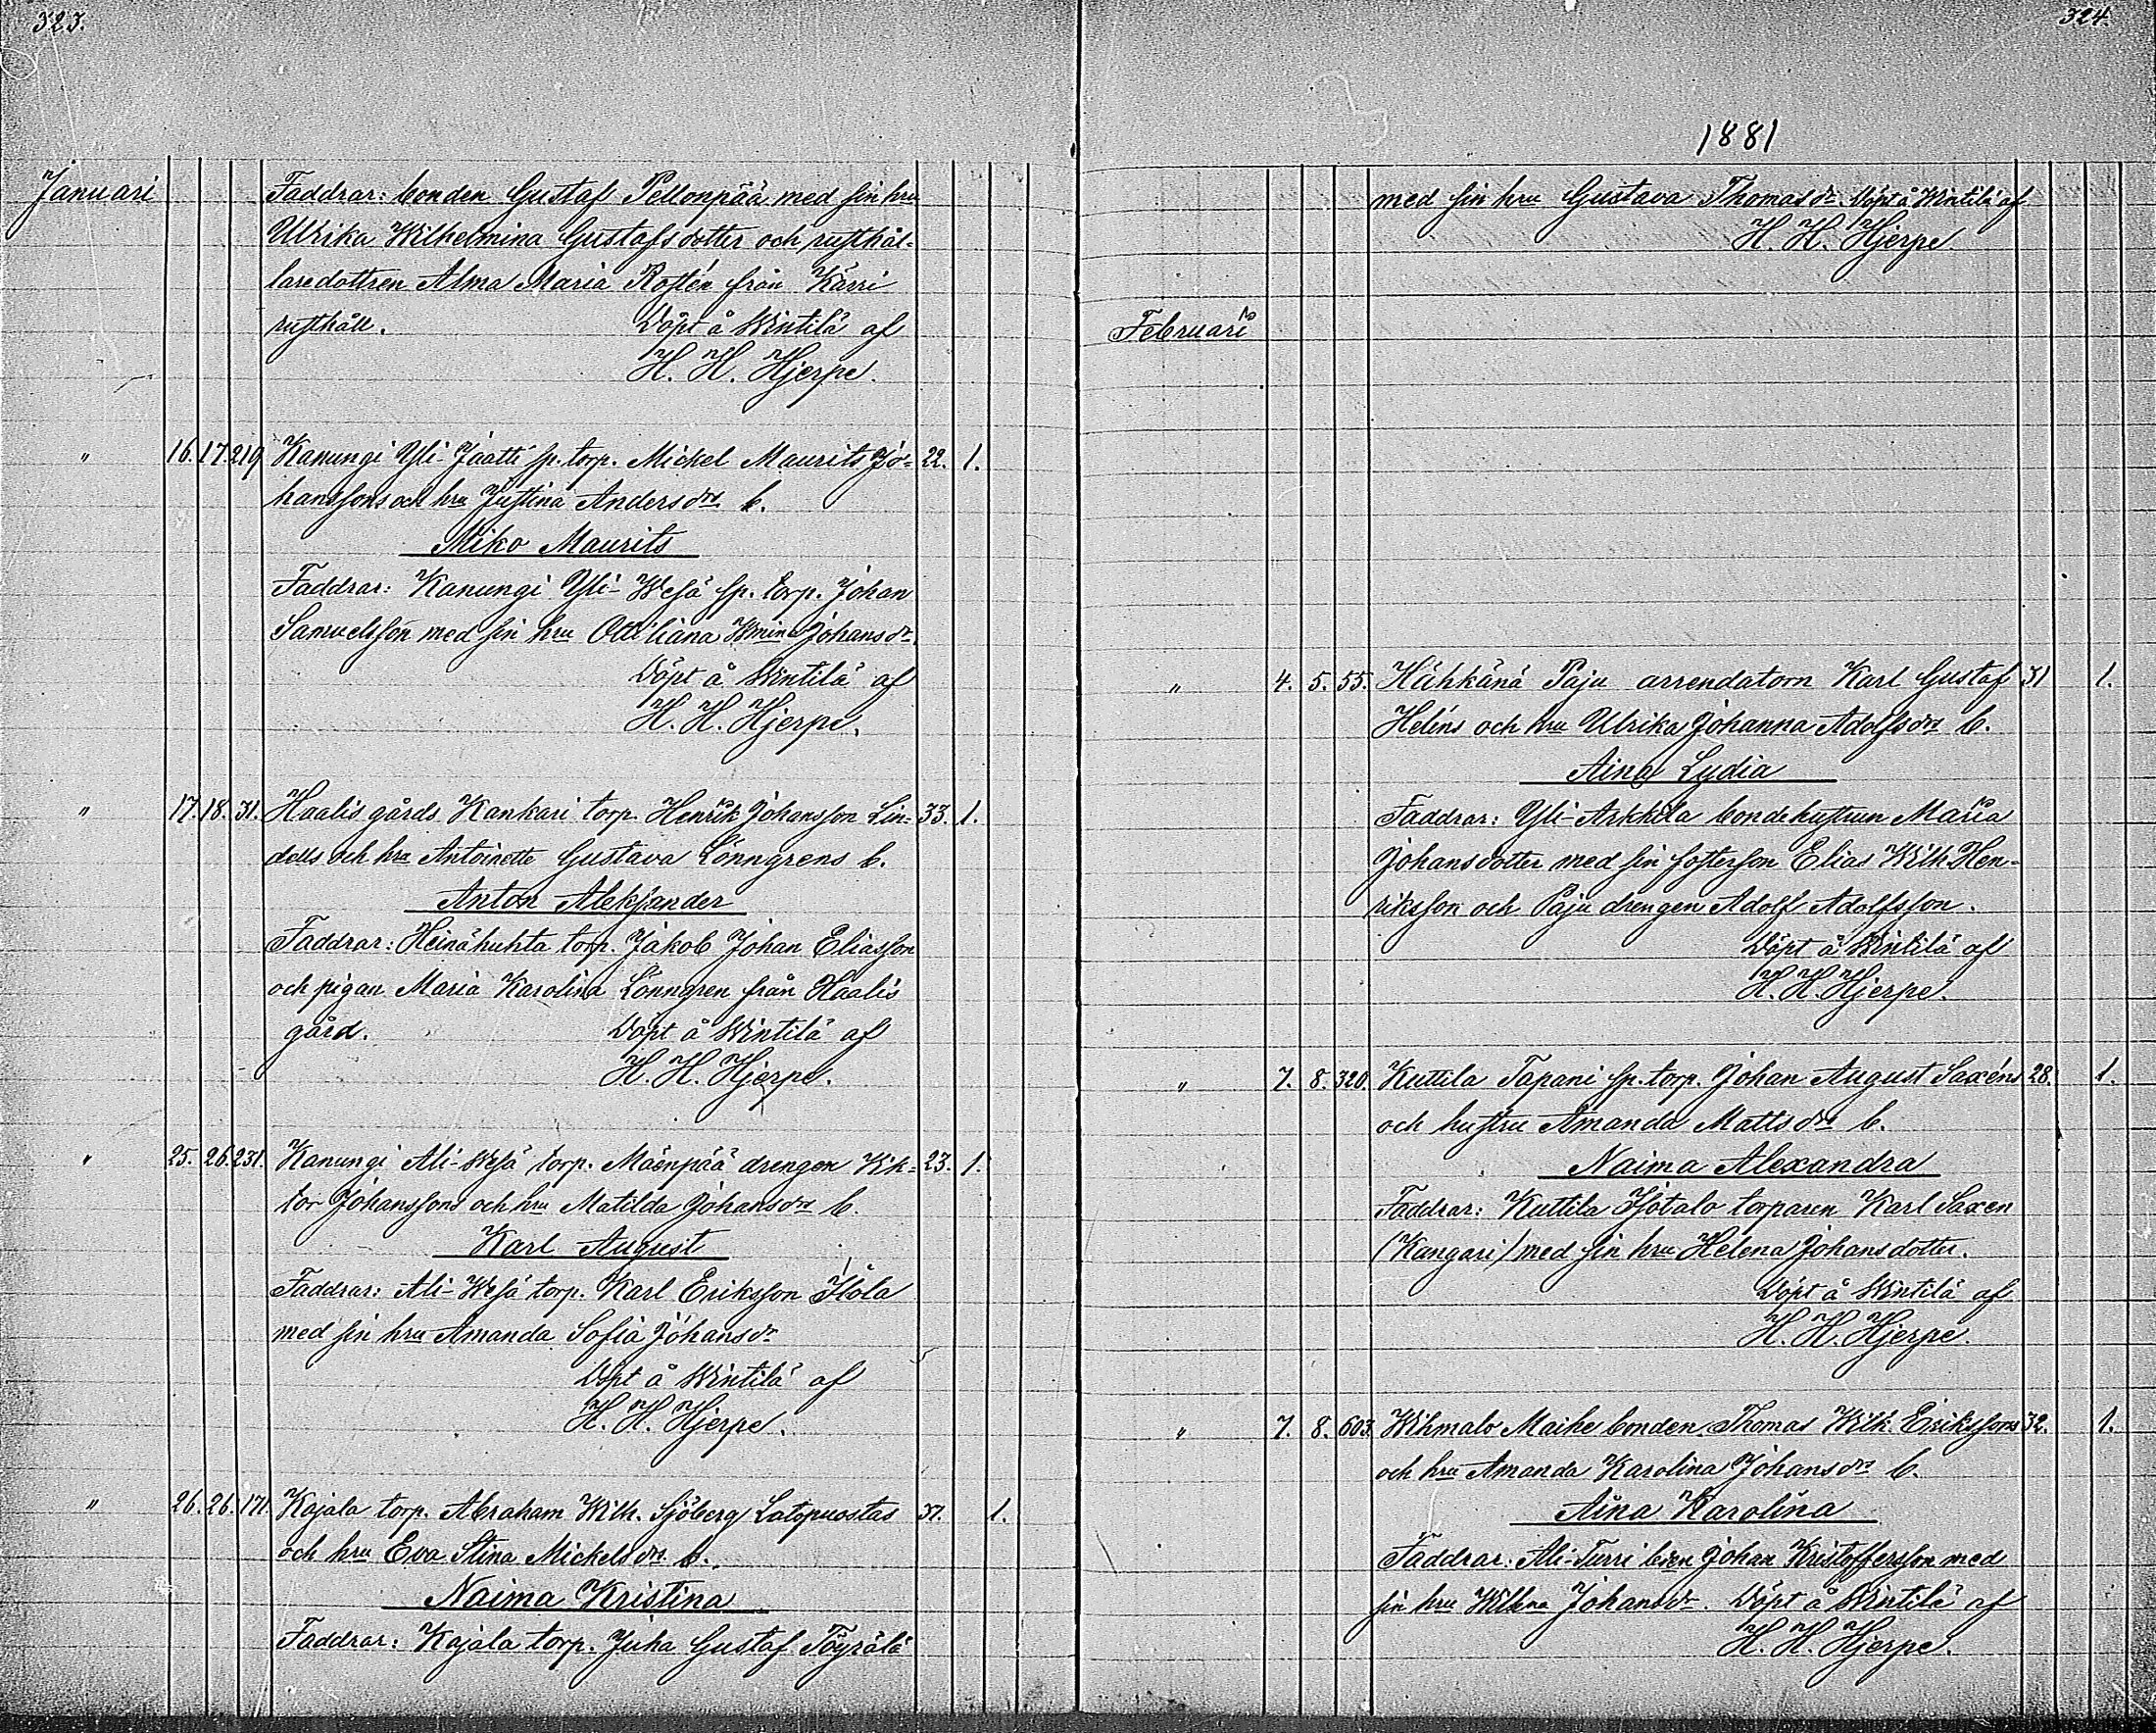 323.
Januari
Faddrar: bonden Gustaf Pellonpää med sin hru
Ulrika Wilhelmina Gustafsdotter och rusthål-
laredottren Alma Maria Rostén från Kärri
rusthåll. Döpt å Wintilä af
H. H. Hjerpe.
" 16. 17. 219 Kanungi Yli-Jaatti sp. torp. Mickel Maurits Jo- 22. 1.
hanssons och hru Justina Andersdrs b.
Miko Maurits
Faddrar: Kanungi Yli-Wesä sp. torp. Johan
Samuelsson med sin hru Ottiliana Wmina Johansdr.
Döpt å Wintilä af
H. H. Hjerpe.
" 17. 18. 31. Haalis gårds Kankari torp. Henrik Johansson Lin- 33. 1.
dells och hru Antoinette Gustava Lönngrens b.
Anton Aleksander
Faddrar: Heinähuhta torp. Jakob Johan Eliasson
och pigan Maria Karolina Lönngren från Haalis
gård. Döpt å Wintilä af
H. H. Hjerpe.
" 25. 26. 231. Kanungi Ali-Wesä torp. Mäenpää drengen Wik- 23. 1.
tor Johanssons och hru Matilda Johansdrs b.
Karl August
Faddrar: Ali-Wesä torp. Karl Eriksson
med sin hru Amanda Sofia Johansdr
Döpt å Wintilä af
H. H. Hjerpe.
" 26. 26. 171. Kojala torp. Abraham Wilh. Sjöberg Latopuostas 37. 1.
och hru Eva Stina Mickelsdrs b.
Naima Kristina
Faddrar: Kojala torp. Juha Gustaf Töyrälä
324.
1881
med sin hru Gustava Thomasdr. Döpt å Wintilä af
H. H. Hjerpe
Februari
" 4. 5. 55. Hähkänä Paju arrendatorn Karl Gustaf 31 1.
Heléns och hru Ulrika Johanna Adolfsdrs b.
Aina Lydia
Faddrar: Yli-Arkkila bondehustrun Maria
Johansdotter med sin fosterson Elias Wilh. Hen-
riksson och Paju drengen Adolf Adolfsson.
Döpt å Wintilä af
H. H. Hjerpe.
" 7. 8. 320. Kuttila Tapani sp. torp. Johan August Saxéns 28. 1.
och hustru Amanda Mattsdrs b.
Naima Alexandra
Faddrar: Kuttila Isotalo torparen Karl Saxen
(Kangari) med sin hru Helena Johansdotter.
Döpt å Wintilä af
H. H. Hjerpe.
" 7. 8. 603. Wihmalo Maihe bonden Thomas Wilh. Erikssons 32. 1.
och hru Amanda Karolina Johansdrs b.
Aina Karolina
Faddrar: Ali-Turri bden Johan Kristoffersson med
sin hru Wilhna Johansdr. Döpt å Wintilä af
H. H. Hjerpe.